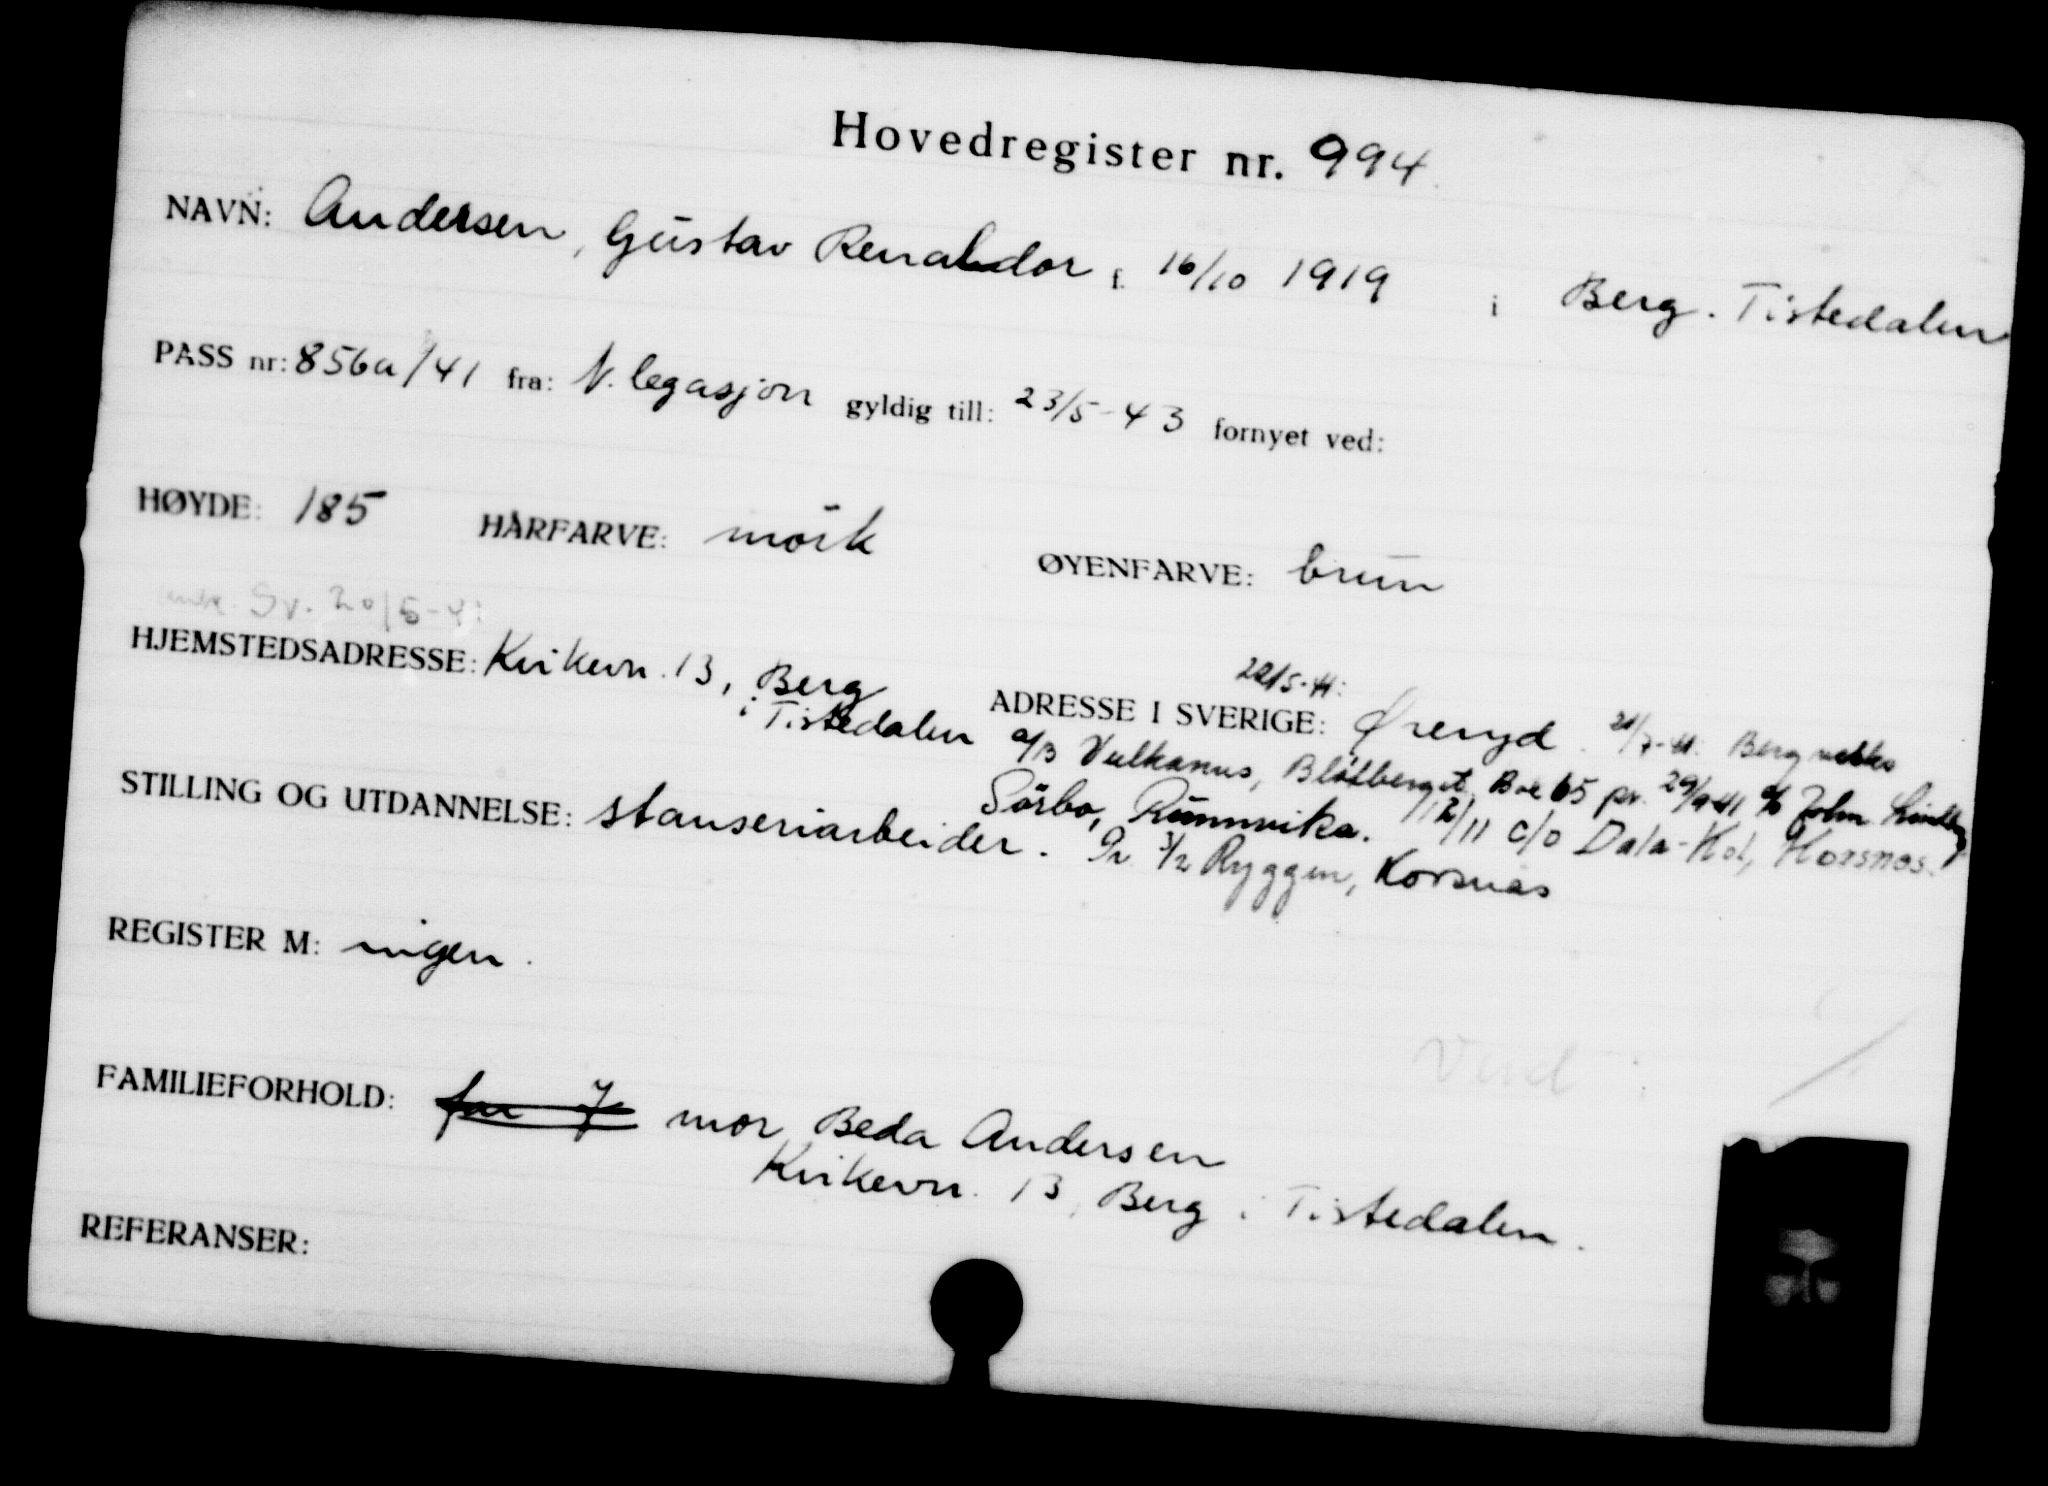 Hovedregister nr. 994
NAVN: Andersen, Gustav Renaldor f. 16/10 1919 i Berg. Tistedalen
PASS nr: 856a/41 fra: N. legasjon gyldig till: 23/5-43 fornyet ved:
HØYDE: 185 HÅRFARVE: mörk ØYENFARVE: brun
Sv. 20/5-41
HJEMSTEDSADRESSE: Kvikevn. 13, Berg
i Tistedalen
ADRESSE I SVERIGE: Øreryd. 21/7-41: Berg
a/B Vulkanus, Blötberget. Box 65 pr. 29/9-41 c/o John
Sörbo, Rummvika. 12/11 c/o Dala-Kol, Korsnäs.
Pr. 3/2 Ryggen, Korsnäs
STILLING OG UTDANNELSE: stanseriarbeider.
REGISTER M: ingen.
Vend
FAMILIEFORHOLD: far mor Beda Andersen
Kvikevn. 13, Berg i Tistedalen.
REFERANSER: